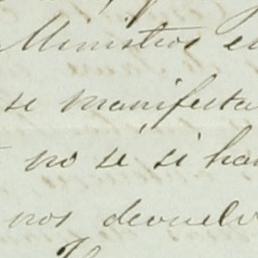 Ministros en
se manifesta
no sé si han
nos devuelv